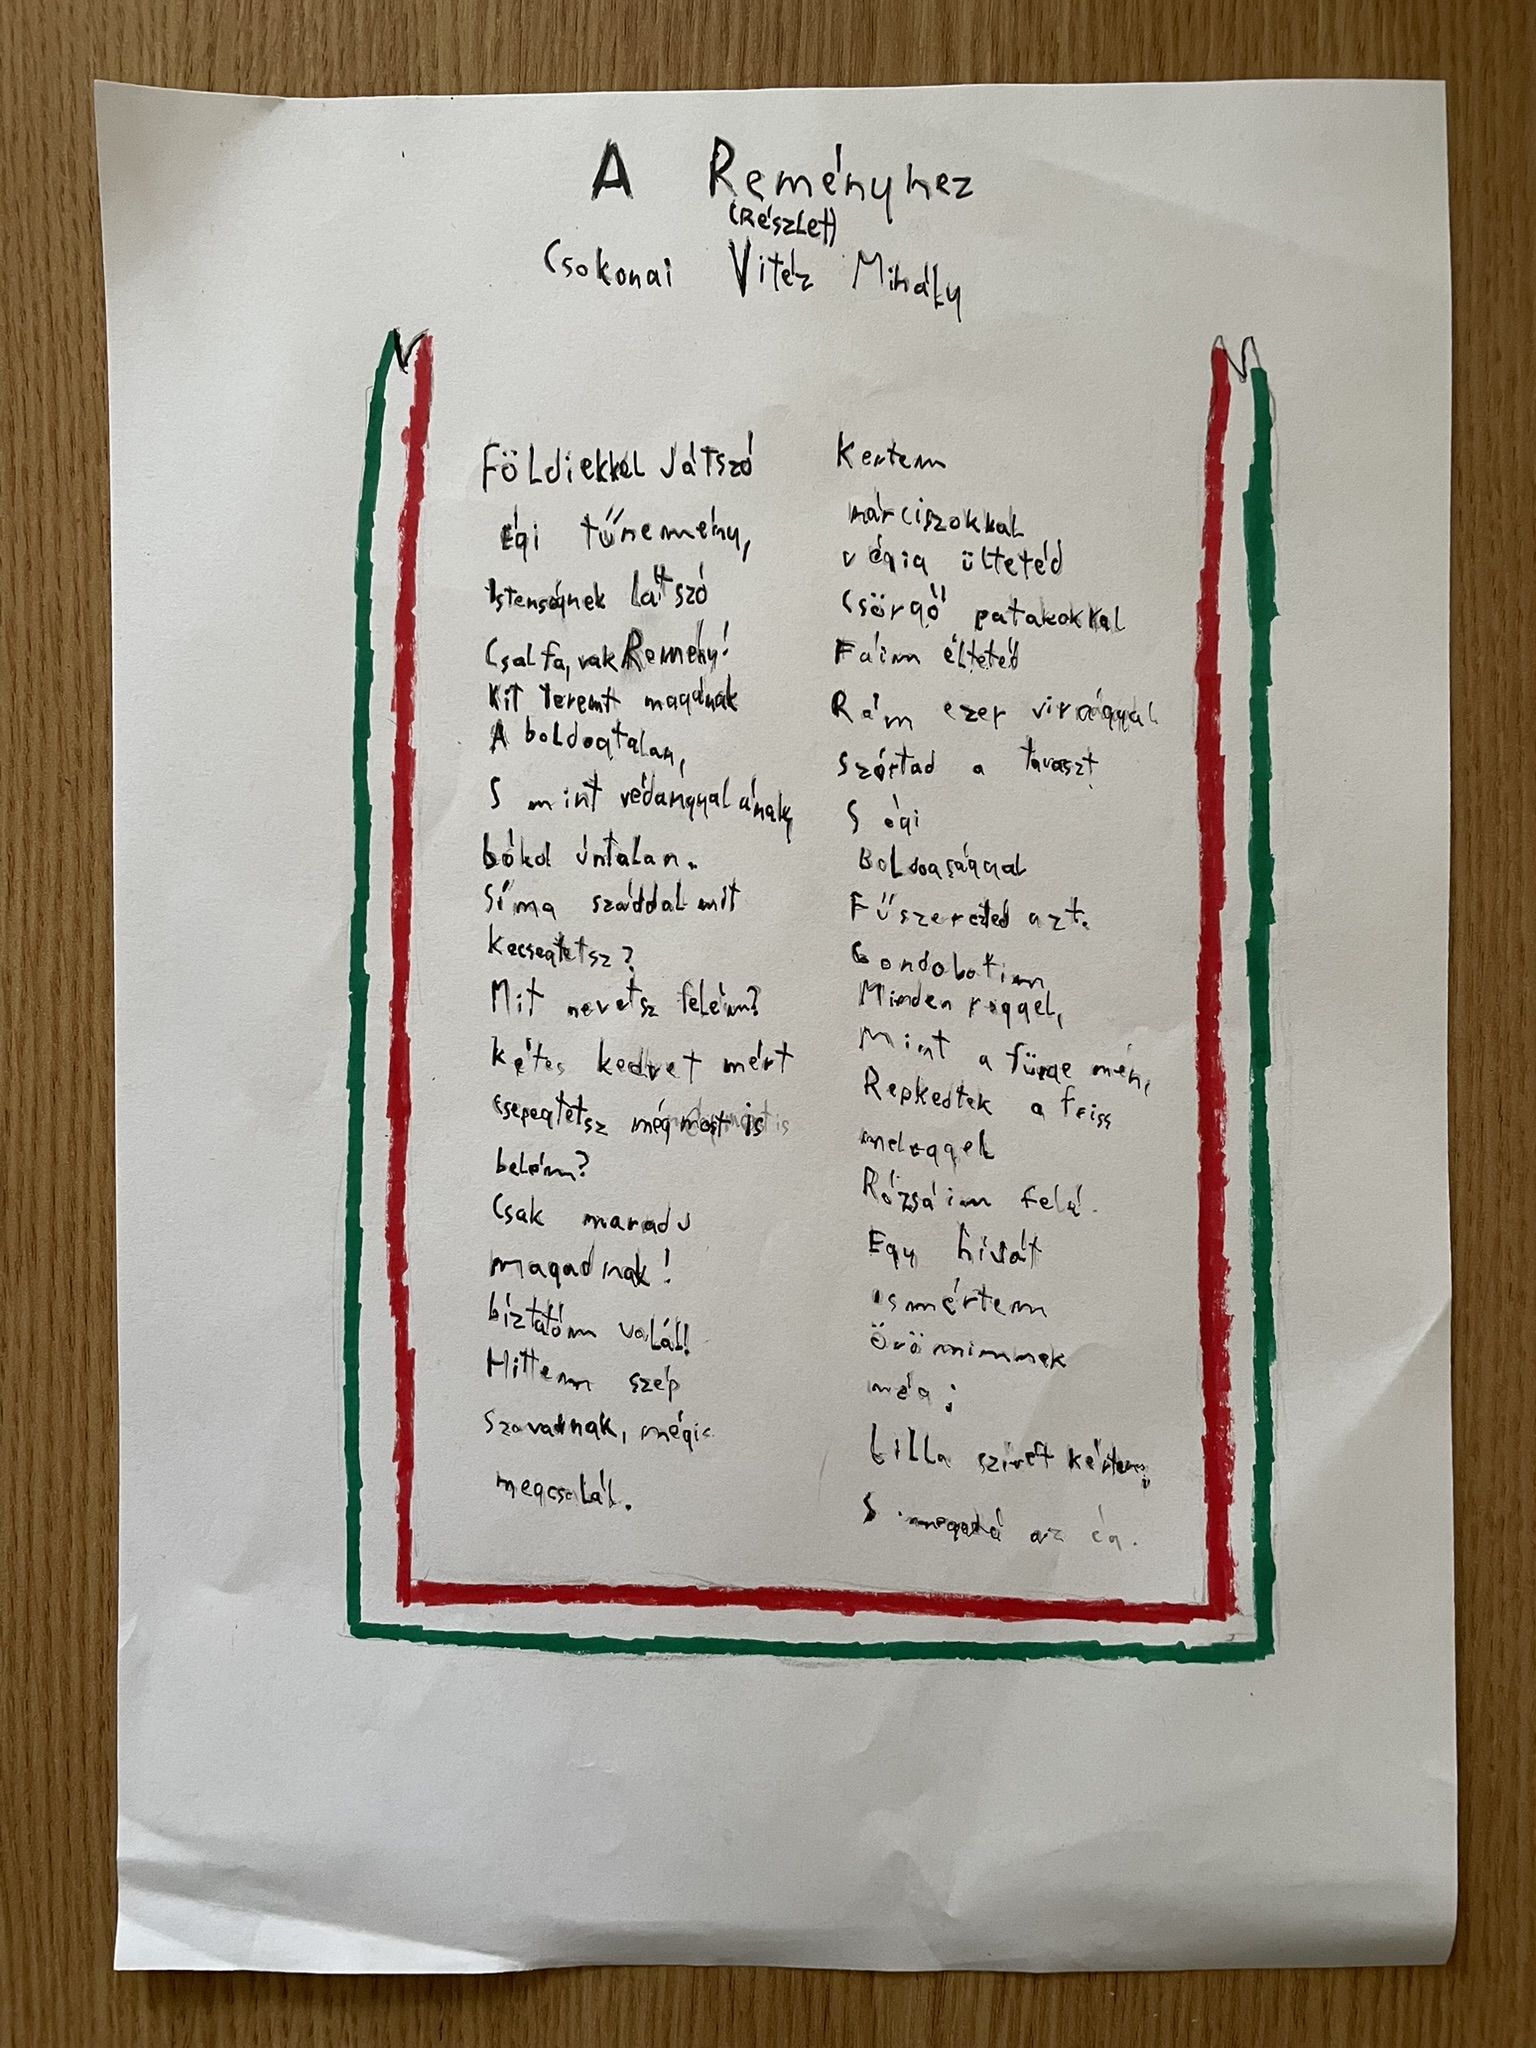 A Reményhez
(Részlet)
Csokonai Vitéz Mihály
Földiekkel játszó
égi tűnemény,
Istenségnek látszó
Csalfa, vak Remény!
Kit teremt magának
A boldogtalan,
S mint védangyalának,
bókol úntalan.
Síma száddal mit
kecsegtetsz?
Mit nevetsz felém?
kétes kedvet mért
csepegtetsz még most is
belém?
Csak maradj
magadnak!
bíztatóm valál!
Hittem szép
szavadnak, mégis
megcsalál.
Kertem
nárciszokkal
végig ültetéd
Csörgő patakokkal
Fáim éltetéd
Rám ezer virággal
Szórtad a tavaszt
S égi
Boldogsággal
Fűszerezted azt.
Gondolatim
Minden reggel,
Mint a fürge méh,
Repkedtek a friss
meleggel
Rózsáim felé.
Egy híját
esmértem
Örömimnek
még:
Lilla szívét kértem;
S megadá az ég.